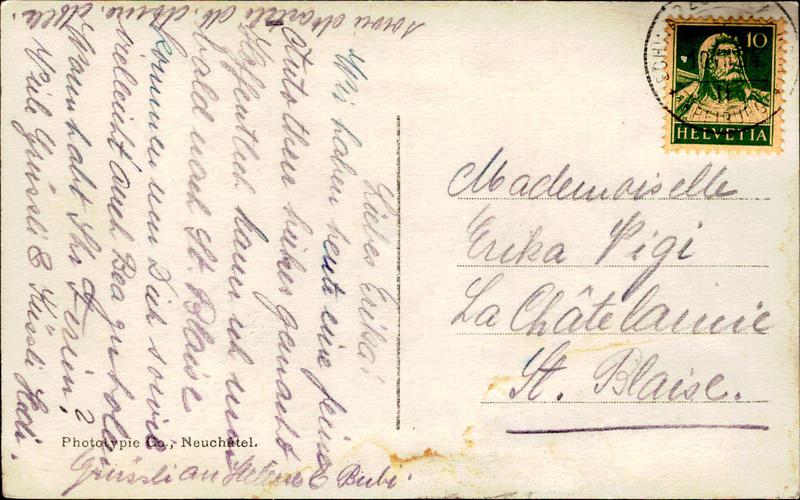 Liebes Erika!
Wir haben heut eine feine
Auto thur hikes gemacht
Hoffentlich kann ich nun
bald nach St. Blaise
kommen um Dich sowie
vielaicht auch Bea zu holen
Wann habt Ihr Ferien?
Viele Grüssli & Küssli Hedi.
Grüssli an Helene & Bubi
Phototypie Co., Neuchâtel.
10
HELVETIA
Mademoiselle
Erika Pigi
La Châtelainie
St. Blaise.